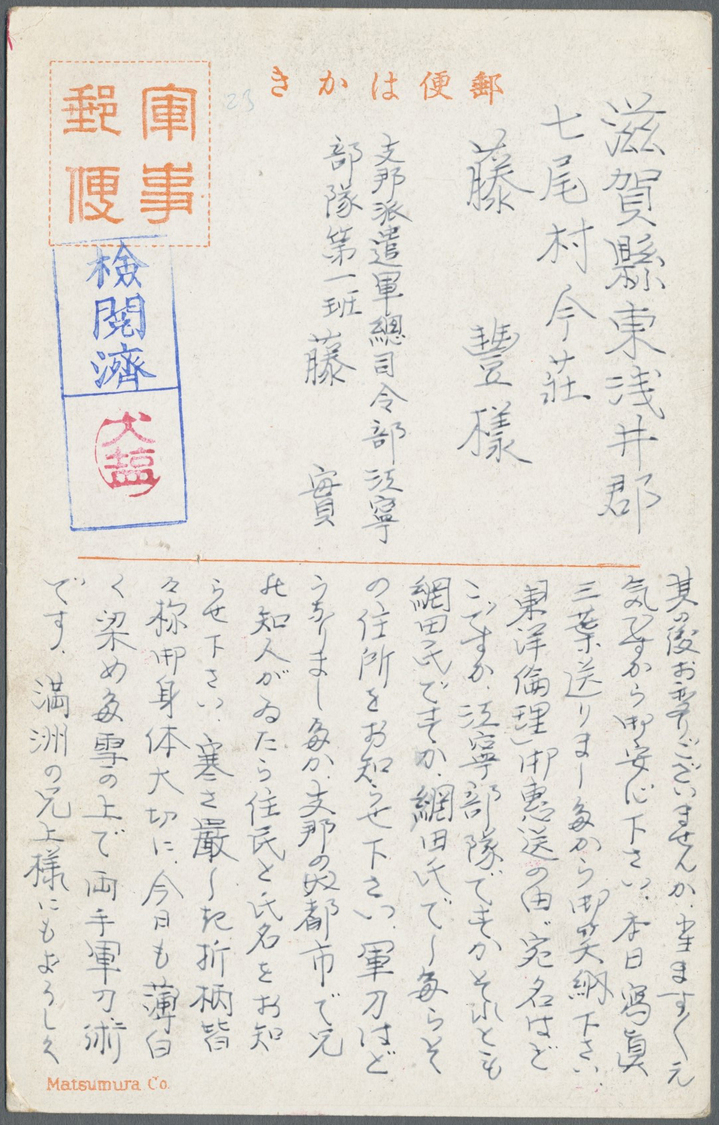 きかはは便郵
軍事
郵便
検閲濟
犬塚
滋賀縣東浅井郡
七尾村今荘
藤 豊様
支那派遣軍總司令部江寧
部隊第一班 藤 實
其の後お変りございませんか、小生ますく元
気ですから御安心下さい、本日寫真
三葉送りましたから御笑納下さい、
「東洋倫理」御惠送の由、宛名はど
こですか、江寧部隊ですかそれとも
網田氏ですか、網田氏でしたらそ
の住所をお知らせ下さい、軍刀はど
うなりましたか、支那の都市で兄
の知人がゐたら住民と氏名をお知
らせ下さい、寒さ嚴しき折柄皆
々様御身体大切に、今日も薄白
く染めた雪の上で両手軍刀術
です、満洲の兄上様にもよろしく
Matsumura Co.